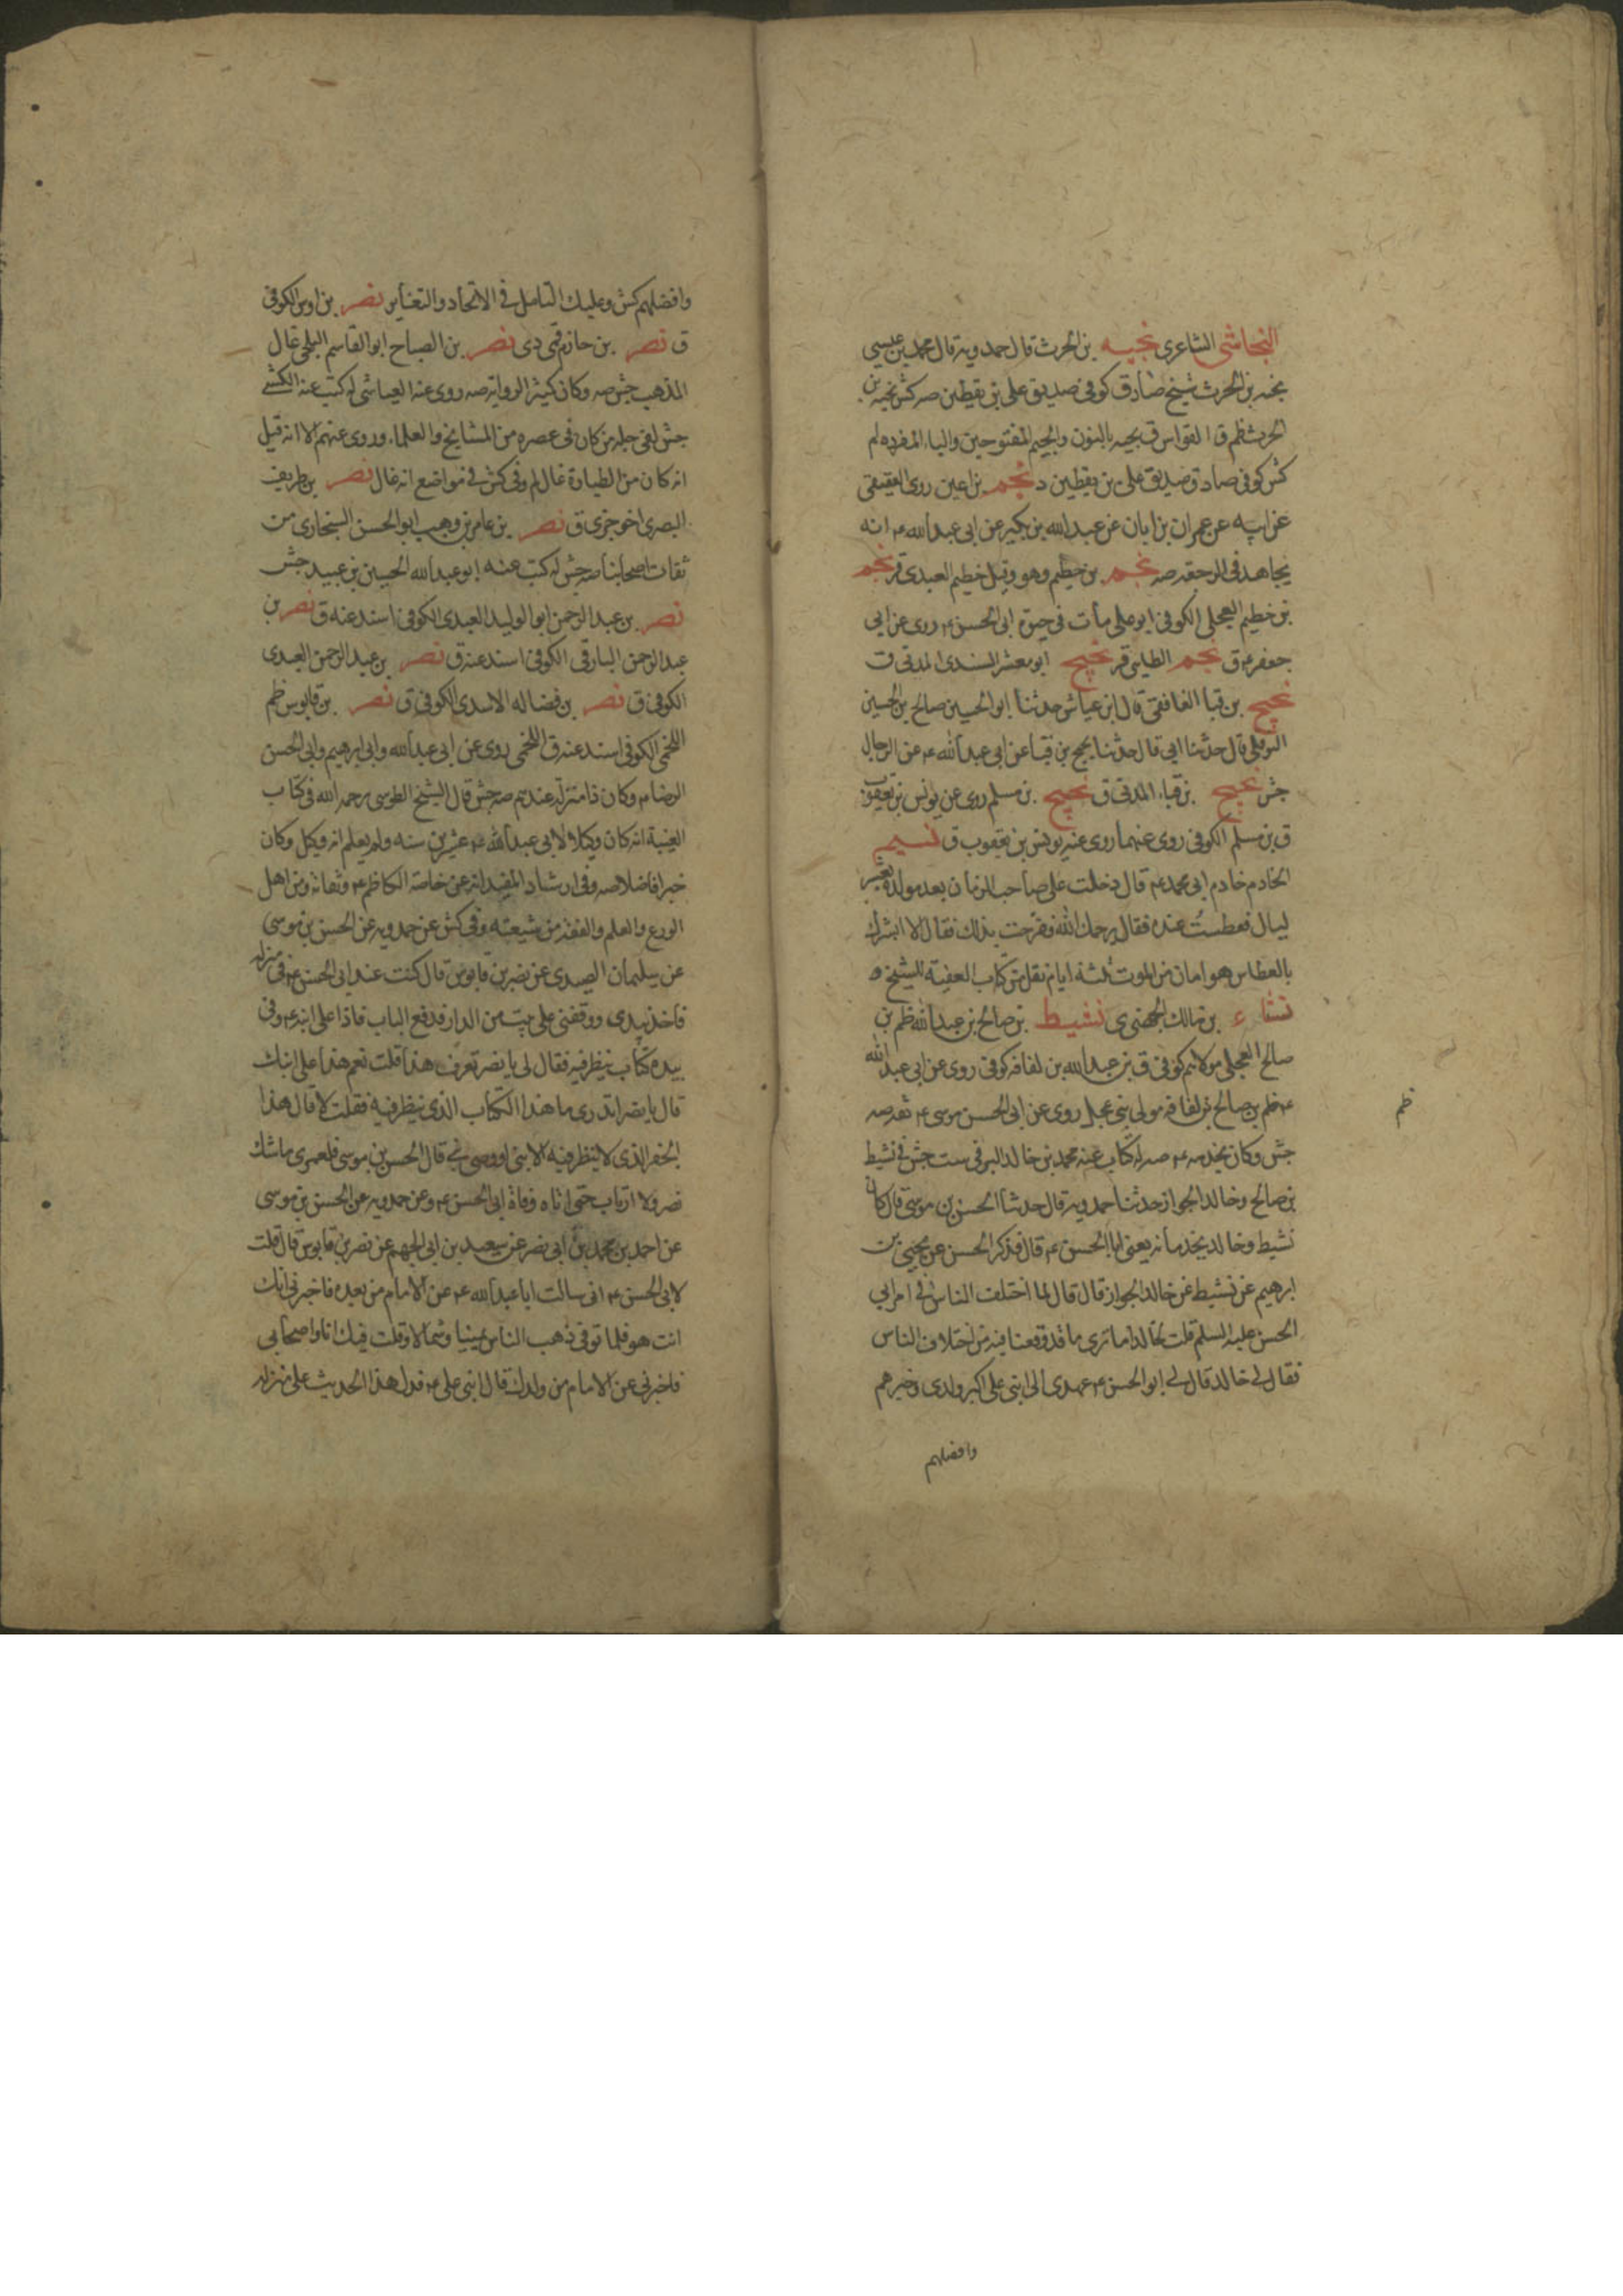 النجاشى الشاعر ى نجيه بن الحرث قال حمدويه قال محمد بن عيسى
نجيه بن الحرث شيخ صادق كوفى صديق على بن يقطين صه كش نجيه بن
الحرث ظم ق القواس ق نجيه بالنون والجيم المفتوحين والباء المفرده لم
كش كوفى صادق صديق على بن يقطين د نجم بن اعين روى العقيقى
عن ابيه عن عمران بن ابان عن عبدالله بن بكير عن ابى عبدالله ع انه
يجاهد فى الرجعة صه نجم بن حطيم وهو وقيل خطيم العبدى قر نجم
بن خطيم العجلى الكوفى ابو على مات فى حيوة ابى الحسن ع روى عن ابى
جعفر ع ق نجم الطايى قر نجيح ابو معشر السندى المدنى ق
نجيح بن قبا الغافقى قال ابن عياش حدثنا ابو الحسين صالح بن الحسين
النوفلى قال حدثنا ابى قال حدثنا نجيح بن قبا عن ابى عبدالله ع عن الرجال
جش نجيح بن قباء المدنى ق نجيح بن مسلم روى عن يونس بن يعقوب
ق بن مسلم الكوفى روى عنهما روى عنه يونس بن يعقوب ق نسيم
الخادم خادم ابى محمد ع قال دخلت على صاحب الزمان بعد مولده بعشر
ليال فعطست عنده فقال يرحمك الله ففرحت بذلك فقال الا ابشرك
بالعطاس هو امان من الموت ثلثة ايام نقل من كتاب الغيبة للشيخ ره
نشاء بن مالك الجهنى ى نشيط بن صالح بن عبدالله ظم بن
صالح العجلى مولاهم كوفى ق بن عبدالله بن لفافه كوفى روى عن ابى عبدالله
ع ظم بن صالح بن لفافه مولى بنى عجل روى عن ابى الحسن موسى ع ثقه صه
ظم
جش وكان يخدمه ع صه له كتاب عنه محمد بن خالد البرقى ست جش فى نشيط
بن صالح وخالد الجواز حدثنا حمدويه قال حدثنا الحسن بن موسى قال كان
نشيط وخالد يخدمانه يعنى ابا الحسن ع قال فذكر الحسن عن يحيى بن
ابرهيم عن نشيط عن خالد الجواز قال قال لما اختلف الناس فى امر ابى
الحسن عليه السلم قلت لخالد اما ترى ما قد وقعنا فيه من اختلاف الناس
فقال لى خالد قال لى ابو الحسن ع عهدى الى ابنى على اكبر ولدى وخيرهم
وافضلهم
وافضلهم كش وعليك التامل فى الاتحاد والتغاير نصر بن اوس الكوفى
ق نصر بن حازم قمى دى نصر بن الصباح ابو القاسم البلخى غال
المذهب جش صه وكان كثير الرواية صه روى عنه العياشى له كتب عنه الكشى
جش لقى جلة من كان فى عصره من المشايخ والعلماء وروى عنهم الا انه قيل
انه كان من الطيارة غال لم وفى كش فى مواضع انه غال نصر بن طريف
البصرى اخو جزى ق نصر بن عامر بن وهب ابو الحسن السنجارى من
ثقات اصحابنا صه جش له كتب عنه ابو عبدالله الحسين بن عبيد جش
نصر بن عبد الرحمن ابو الوليد العبدى الكوفى اسند عنه ق نصر بن
عبد الرحمن البارقى الكوفى اسند عنه ق نصر بن عبد الرحمن العبدى
الكوفى ق نصر بن فضاله الاسدى الكوفى ق نصر بن قابوس ظم
اللخمى الكوفى اسند عنه ق اللخمى روى عن ابى عبدالله وابى ابرهيم وابى الحسن
الرضا ع وكان ذا منزلة عندهم صه جش قال الشيخ الطوسى رحمه الله فى كتاب
الغيبة انه كان وكيلا لابى عبدالله ع عشرين سنه ولم يعلم انه وكيل وكان
خيرا فاضلا صه وفى ارشاد المفيد انه من خاصة الكاظم ع وثقاته ومن اهل
الورع والعلم والفقه من شيعته وفى كش عن حمدويه عن الحسن بن موسى
عن سليمان الصيدى عن نصر بن قابوس قال كنت عند ابى الحسن ع فى منزله
فاخذ بيدى ووقفنى على بيت من الدار فدفع الباب فاذا على ابنه ع وفى
بيده كتاب ينظر فيه فقال لى يا نصر تعرف هذا قلت نعم هذا على ابنك
قال يا نصر اتدرى ما هذا الكتاب الذى ينظر فيه فقلت لا قال هذا
الجفر الذى لا ينظر فيه الا نبى او وصى نبى قال الحسن بن موسى فلعمرى ما شك
نصر ولا ارتاب حتى اتاه وفاة ابى الحسن ع وعن حمدويه عن الحسن بن موسى
عن احمد بن محمد بن ابى نصر عن سعيد بن ابى الجهم عن نصر بن قابوس قال قلت
لابى الحسن ع انى سالت ابا عبدالله ع عن الامام من بعده فاخبرنى انك
انت هو فلما توفى ذهب الناس يمينا وشمالا وقلت فيك انا واصحابى
فاخبرنى عن الامام من ولدك قال ابنى على ع فدل هذا الحديث على منزله